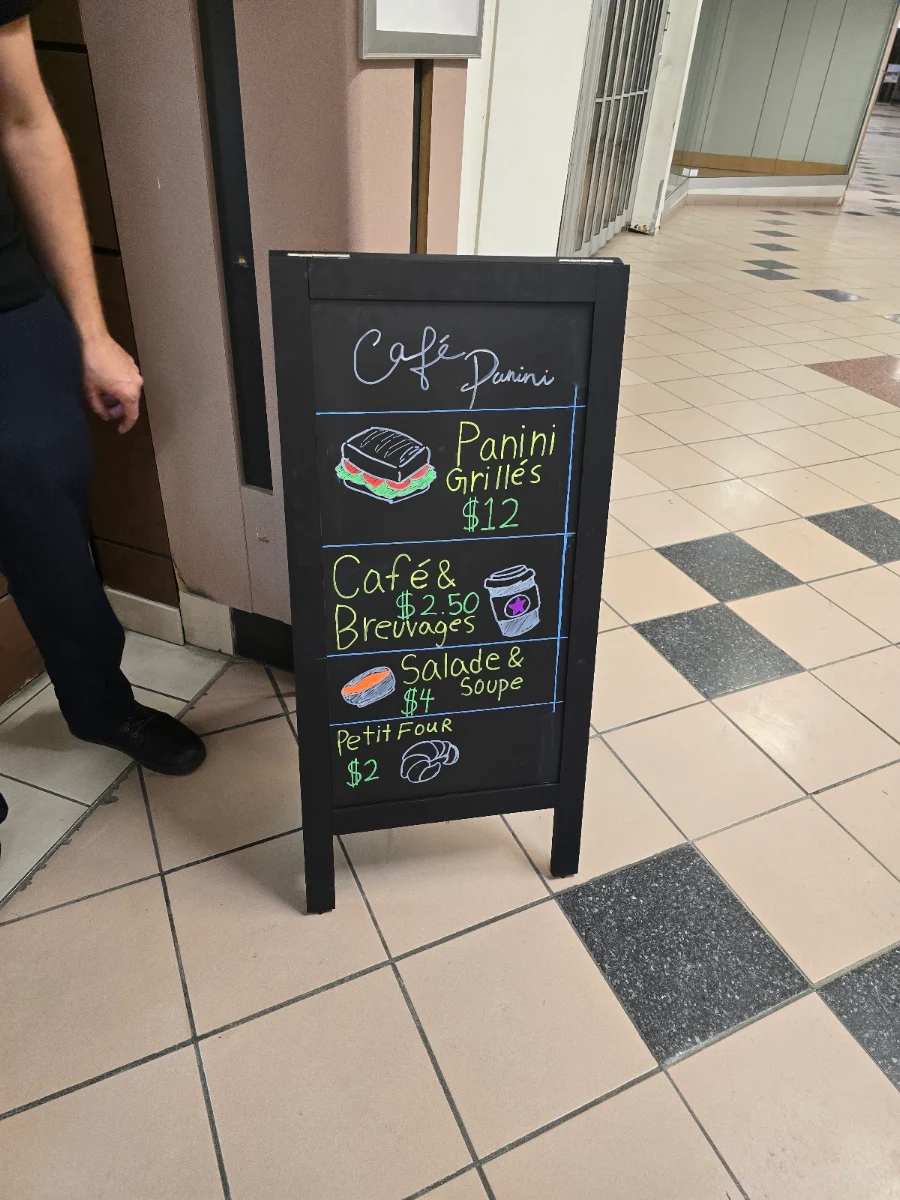 Café
Panini
Panini
Grillés
$12
Café &
$2.50
Breuvages
Salade &
Soupe
$4
Petit Four
$2